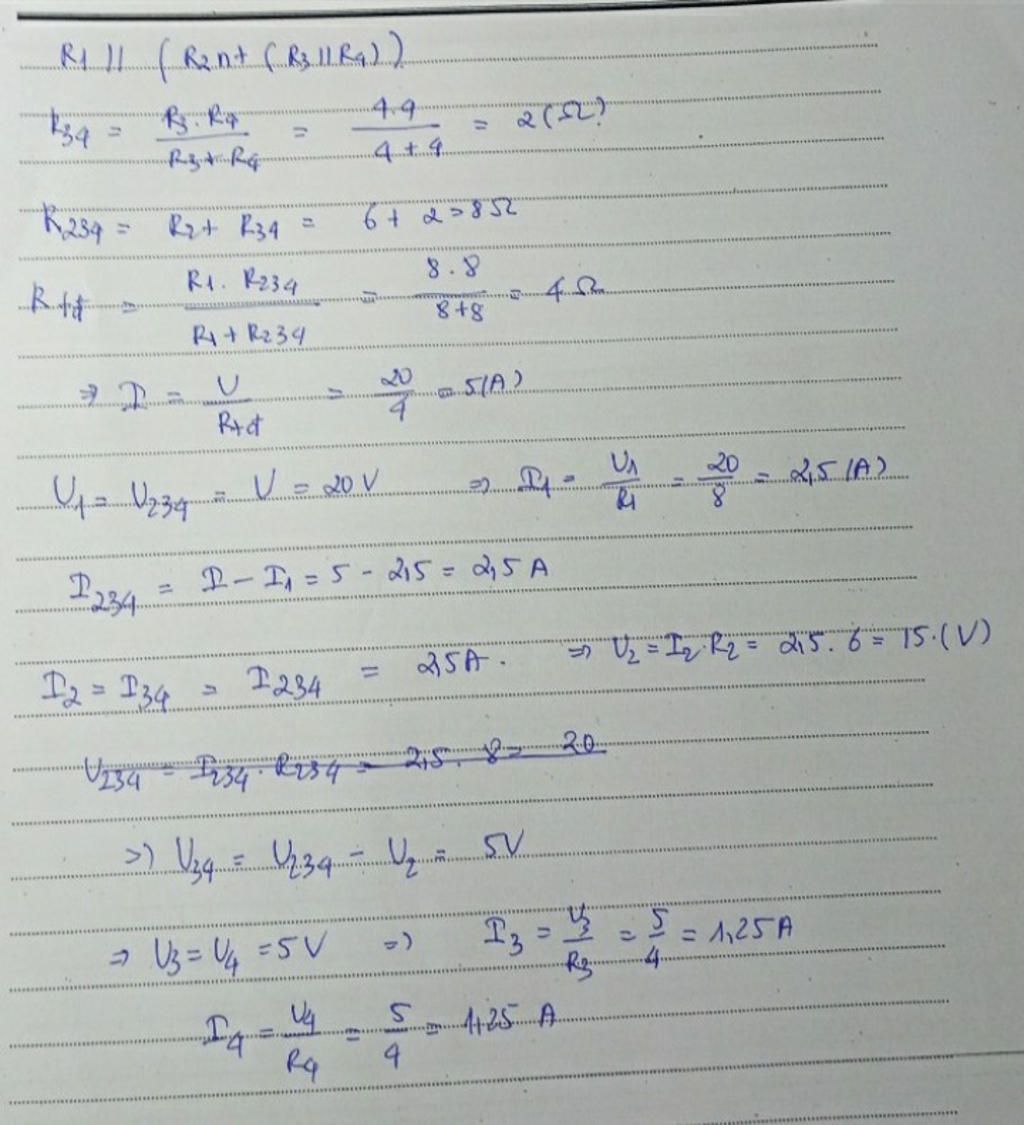 R1 // (R2 nt (R3 // R4))
R34 = R3.R4 / R3+R4 = 4.4 / 4+4 = 2(Ω)
R234 = R2+ R34 = 6+ 2 = 8Ω
Rtđ = R1.R234 / R1+R234 = 8.8 / 8+8 = 4Ω
=> I = U / Rtđ = 20 / 4 = 5(A)
U1 = U234 = U = 20V => I1 = U1 / R1 = 20 / 8 = 2,5(A)
I234 = I - I1 = 5 - 2,5 = 2,5A
I2 = I34 = I234 = 2,5A. => U2 = I2.R2 = 2,5.6 = 15.(V)
U234 = I234.R234 = 2,5.8 = 20
=> U34 = U234 - U2 = 5V
=> U3 = U4 = 5V => I3 = U3 / R3 = 5 / 4 = 1,25A
I4 = U4 / R4 = 5 / 4 = 1,25 A